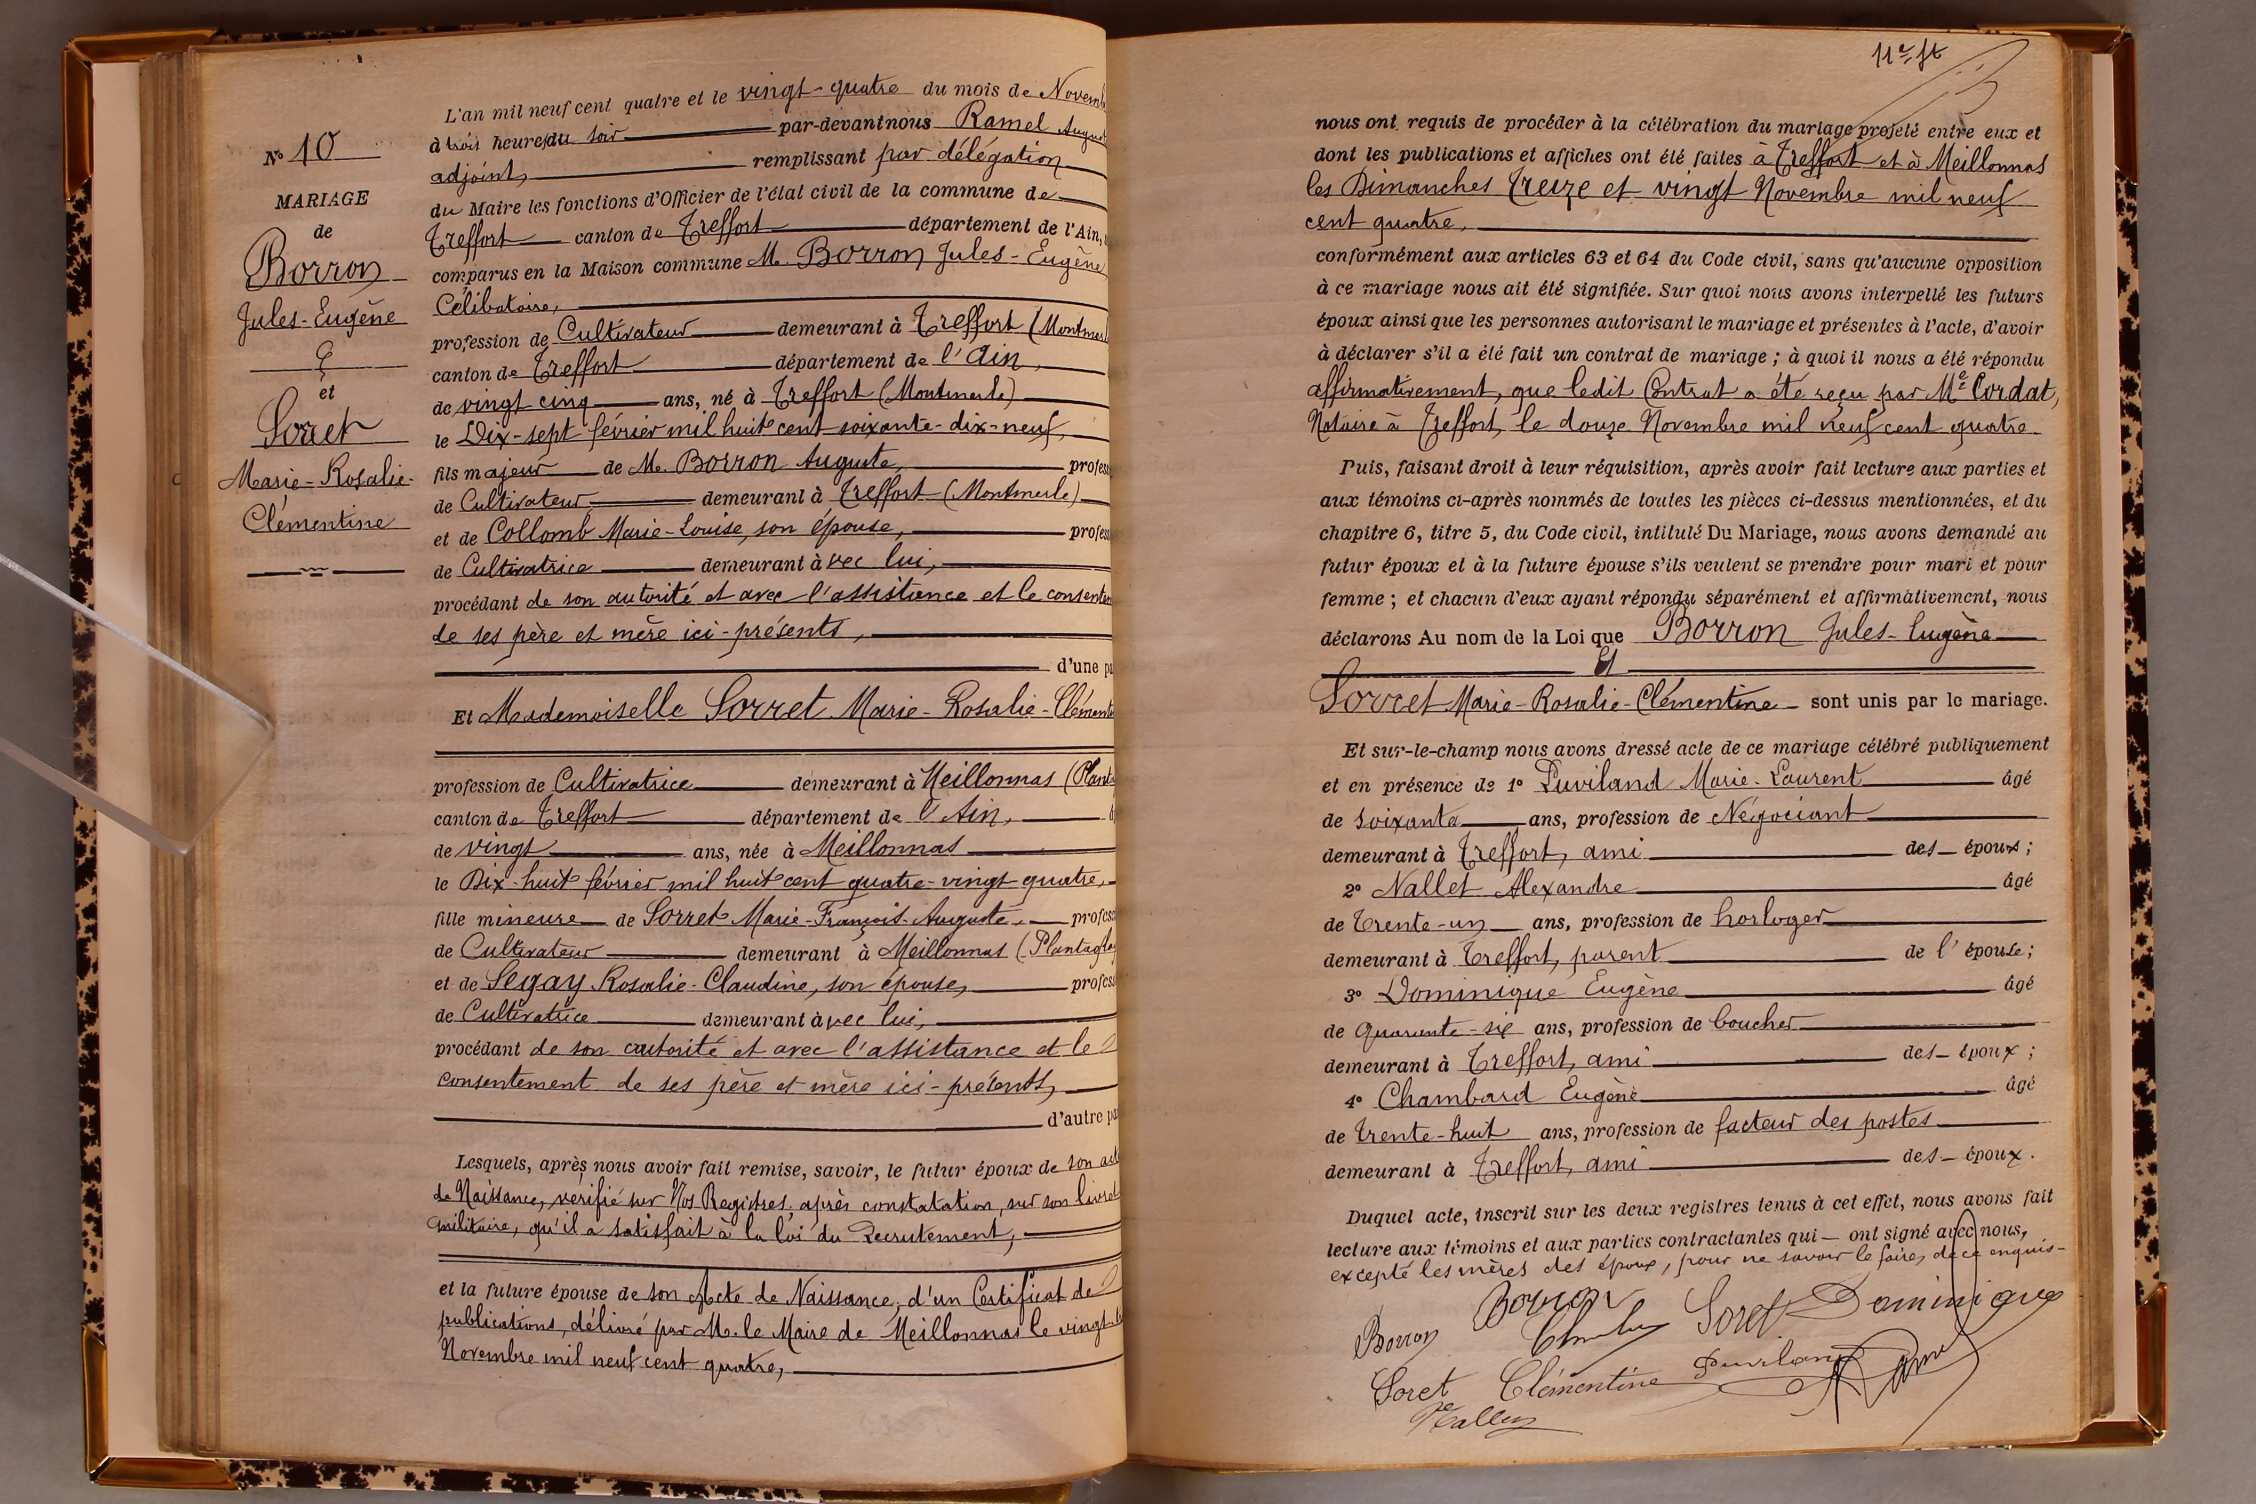 L'an mil neuf cent quatre et le vingt-quatre du mois de Novemb
à trois heures du soir par-devant nous Ramel August
adjoint, remplissant par délégation
du Maire les fonctions d'Officier de l'état civil de la commune de
Treffort canton de Treffort département de l'Ain,
comparus en la Maison commune M. Borron Jules-Eugène
Célibataire,
profession de Cultivateur demeurant à Treffort (Montmerl
canton de Treffort département de l'Ain,
de vingt cinq ans, né à Treffort (Montmerle)
le Dix-sept février mil huit cent soixante-dix-neuf,
fils majeur de M. Borron Auguste, profess
de Cultivateur demeurant à Treffort (Montmerle)
et de Collomb Marie-Louise, son épouse, profess
de Cultivatrice demeurant avec lui,
procédant de son autorité et avec l'assistance et le consentem
de ses père et mère ici-présents,
d'une pa
Et Mademoiselle Sorret Marie-Rosalie-Clémenti
profession de Cultivatrice demeurant à Meillonnas (Planta
canton de Treffort département de l'Ain,
de vingt ans, née à Meillonnas
le Dix-huit février mil huit cent quatre-vingt-quatre,
fille mineure de Sorret Marie-François-Auguste, profess
de Cultivateur demeurant à Meillonnas (Plantagla
et de Segay Rosalie-Claudine, son épouse, profess
de Cultivatrice demeurant avec lui,
procédant de son autorité et avec l'assistance et le
consentement de ses père et mère ici-présents,
d'autre pa
Lesquels, après nous avoir fait remise, savoir, le futur époux de son act
de Naissance, vérifié sur Nos Registres, après constatation, sur son livret
militaire, qu'il a satisfait à la loi du Recrutement,
et la future épouse de son Acte de Naissance, d'un Certificat de
publications, délivré par M. le Maire de Meillonnas le vingt-
Novembre mil neuf cent quatre,
No 10
MARIAGE
de
Borron
Jules-Eugène
et
Sorret
Marie-Rosalie-
Clémentine
nous ont requis de procéder à la célébration du mariage projeté entre eux et
dont les publications et affiches ont été faites à Treffort et à Meillonnas
les Dimanches Treize et vingt Novembre mil neuf
cent quatre,
conformément aux articles 63 et 64 du Code civil, sans qu'aucune opposition
à ce mariage nous ait été signifiée. Sur quoi nous avons interpellé les futurs
époux ainsi que les personnes autorisant le mariage et présentes à l'acte, d'avoir
à déclarer s'il a été fait un contrat de mariage ; à quoi il nous a été répondu
affirmativement, que ledit Contrat a été reçu par Me Cordat,
Notaire à Treffort, le douze Novembre mil neuf cent quatre
Puis, faisant droit à leur réquisition, après avoir fait lecture aux parties et
aux témoins ci-après nommés de toutes les pièces ci-dessus mentionnées, et du
chapitre 6, titre 5, du Code civil, intitulé Du Mariage, nous avons demandé au
futur époux et à la future épouse s'ils veulent se prendre pour mari et pour
femme ; et chacun d'eux ayant répondu séparément et affirmativement, nous
déclarons Au nom de la Loi que Borron Jules-Eugène
Et
Sorret Marie-Rosalie-Clémentine sont unis par le mariage.
Et sur-le-champ nous avons dressé acte de ce mariage célébré publiquement
et en présence de 1° Puviland Marie-Laurent âgé
de soixante ans, profession de Négociant
demeurant à Treffort, ami des époux ;
2° Nallet Alexandre âgé
de Trente-un ans, profession de horloger
demeurant à Treffort, parent de l'épouse ;
3° Dominique Eugène âgé
de quarante-six ans, profession de boucher
demeurant à Treffort, ami des époux ;
4° Chambard Eugène âgé
de Trente-huit ans, profession de facteur des postes
demeurant à Treffort, ami des époux.
Duquel acte, inscrit sur les deux registres tenus à cet effet, nous avons fait
lecture aux témoins et aux parties contractantes qui ont signé avec nous,
excepté les mères des époux, pour ne savoir le faire, de ce enquis
Borron Borron Soret Dominique
Soret Clémentine Puviland
Nallet